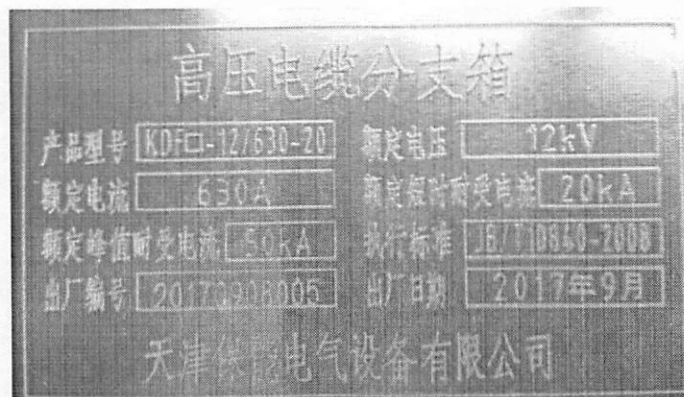 高压电缆分支箱
产品型号 KDF□-12/630-20 额定电压 12kV
额定电流 630A 额定短时耐受电流 20kA
额定峰值耐受电流 50kA 执行标准 JB/T10840-2008
出厂编号 20170908005 出厂日期 2017年9月
天津保 电气设备有限公司